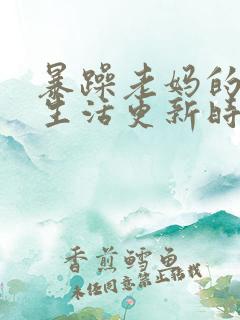 暴躁老妈的
生活更新时
香煎鳕鱼
未经同意禁止转载